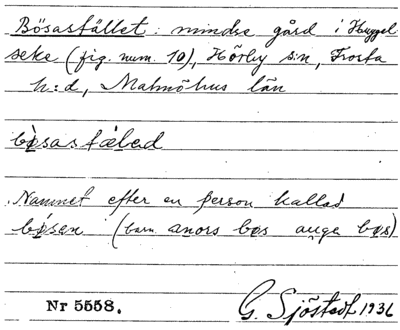 Bösastället: mindre gård i Huggel-
seke (fig. num. 10), Hörby s:n, Frosta
h:d, Malmöhus län
bøsastǽled
Namnet efter en person kallad
bøsen (barn. anors bøs auge bøs)
Nr 5558. G. Sjöstedt 1936